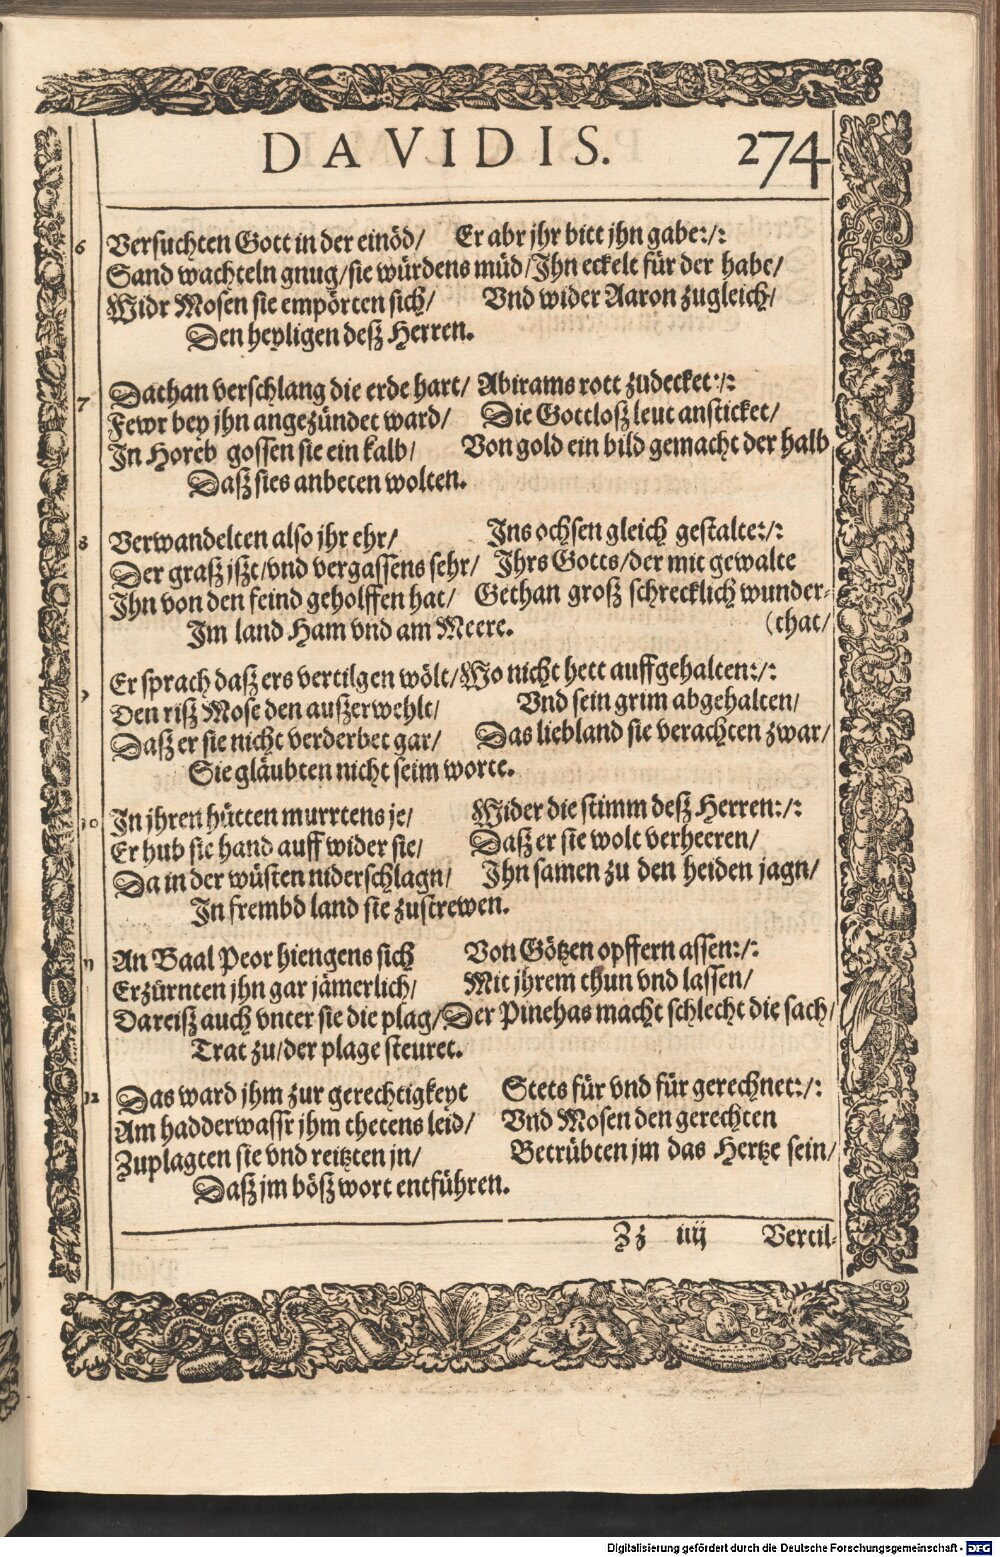 DAVIDIS. 274
6 Versuchten Gott in der einöd/ Er abr jhr bitt jhn gabe:/:
Sand wachteln gnug/sie würdens müd/Ihn eckelt für der habe/
Widr Mosen sie empörten sich/ Vnd wider Aaron zugleich/
Den heyligen deß Herren.
7 Dathan verschlang die erde hart/ Abirams rott zudecket:/:
Fewr bey jhn angezündet ward/ Die Gottloß leut ansticket/
In Horeb gossen sie ein kalb/ Von gold ein bild gemacht der halb
Daß sies anbeten wolten.
8 Verwandelten also jhr ehr/ Ins ochsen gleich gestalte:/:
Der graß jßt/vnd vergassens sehr/ Ihrs Gotts/der mit gewalte
Ihn von den feind geholffen hat/ Gethan groß schrecklich wunder-
Im land Ham vnd am Meere. (that/
9 Er sprach daß ers vertilgen wölt/Wo nicht hett auffgehalten:/:
Den riß Mose den außerwehlt/ Vnd sein grim abgehalten/
Daß er sie nicht verderbet gar/ Das liebland sie verachten zwar/
Sie gläubten nicht seim worte.
10 In jhren hütten murrtens je/ Wider die stimm deß Herren:/:
Er hub sie hand auff wider sie/ Daß er sie wolt verheeren/
Da in der wüsten niderschlagn/ Ihn samen zu den heiden jagn/
In frembd land sie zustrewen.
11 An Baal Peor hiengens sich Von Götzen opffern assen:/:
Erzürnten jhn gar jämerlich/ Mit jhrem thun vnd lassen/
Dareiß auch vnter sie die plag/Der Pinehas macht schlecht die sach/
Trat zu/der plage steuret.
12 Das ward jhm zur gerechtigkeyt Stets für vnd für gerechnet:/:
Am hadderwassr jhm thetens leid/ Vnd Mosen den gerechten
Zuplagten sie vnd reitzten jn/ Betrübten jm das Hertze sein/
Daß jm böß wort entführen.
Zz iiij Vertil-
Digitalisierung gefördert durch die Deutsche Forschungsgemeinschaft - DFG